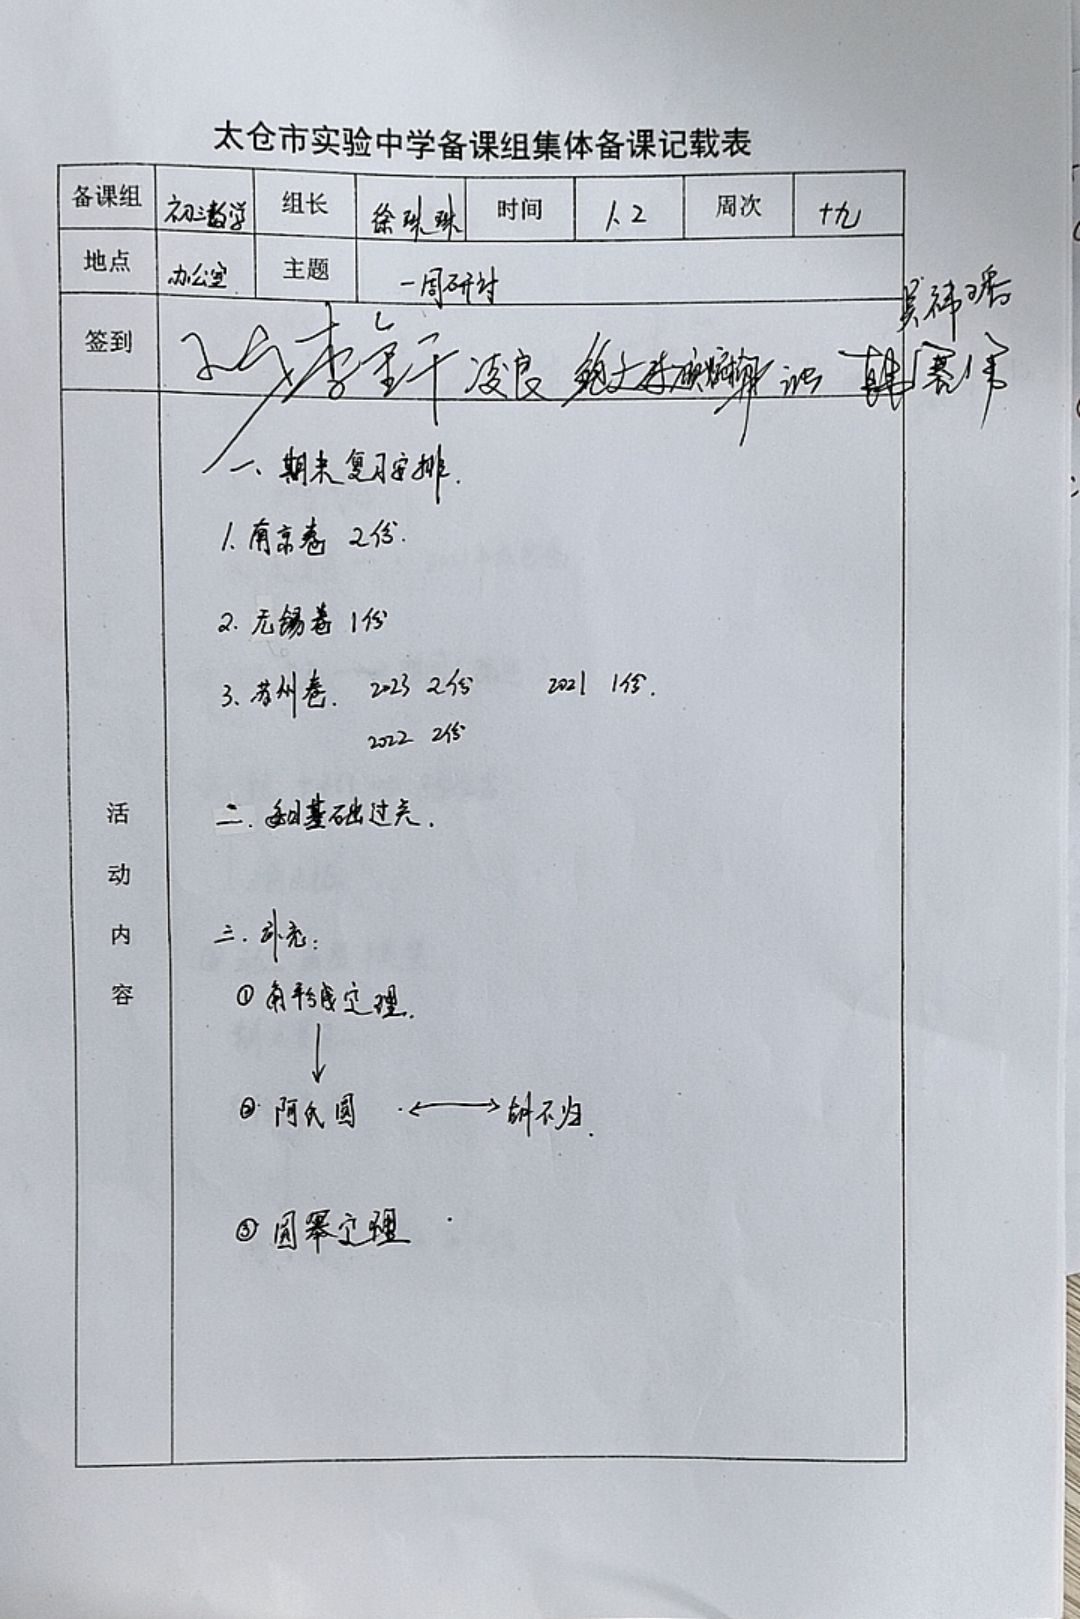 太仓市实验中学备课组集体备课记载表
备课组 初三数学 组长 徐珠珠 时间 1.2 周次 十九
地点 办公室 主题 一周研讨
签到 凌良
一、期末复习安排.
1. 南京卷 2份.
2. 无锡卷 1份
3. 苏州卷. 2023 2份 2021 1份.
2022 2份
二. 每日基础过关.
三. 补充:
① 角平分线定理.
↓
② 阿氏圆 ↔ 胡不归.
③ 圆幂定理
活动内容